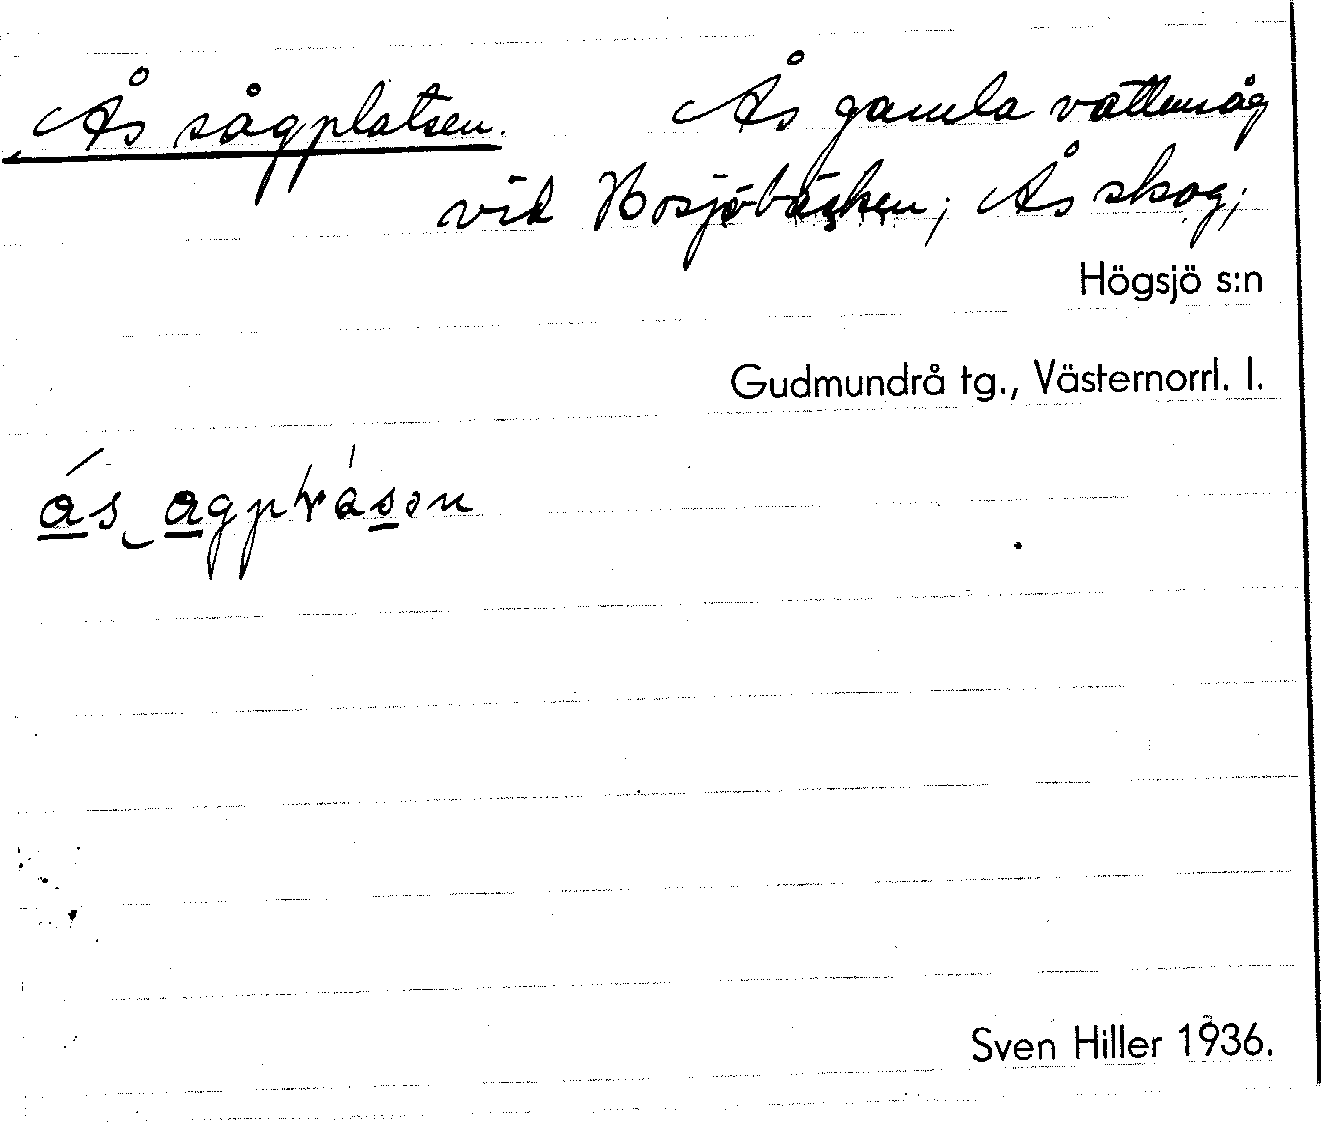 Ås sågplatsen. Ås gamla vattensåg
vid Hosjöbäcken; Ås skog;
Högsjö s:n
Gudmundrå tg., Västernorrl. l.
Sven Hiller 1936.